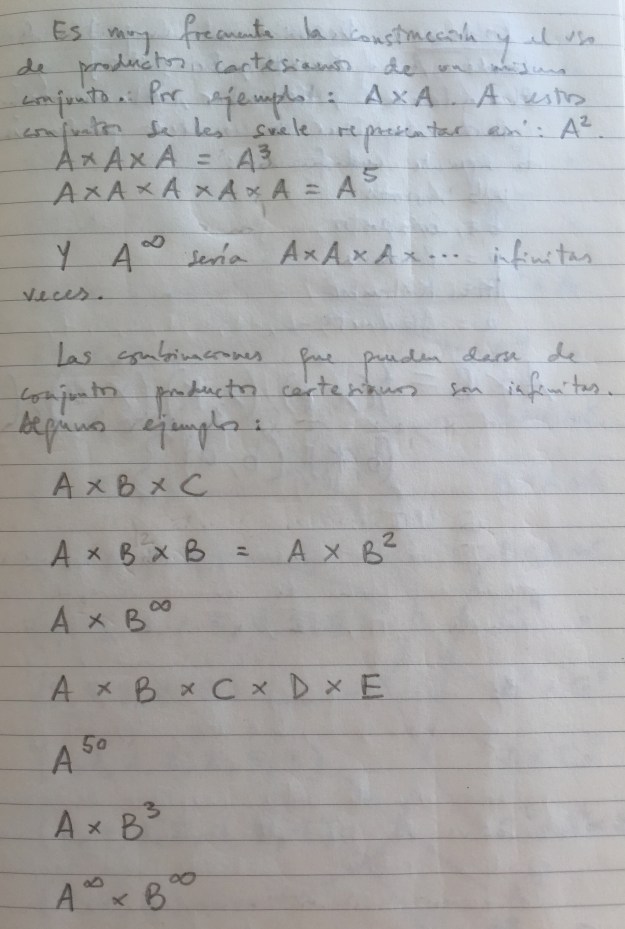 Es muy frecuente la construcción y el uso
de productos cartesianos de un mismo
conjunto. Por ejemplo: A×A. A estos
conjuntos se les suele representar así: A².
A × A × A = A³
A × A × A × A × A = A⁵
Y A^∞ sería A×A×A×... infinitas
veces.
Las combinaciones que pueden darse de
conjuntos productos cartesianos son infinitas.
Algunos ejemplos:
A × B × C
A × B × B = A × B²
A × B^∞
A × B × C × D × E
A⁵⁰
A × B³
A^∞ × B^∞